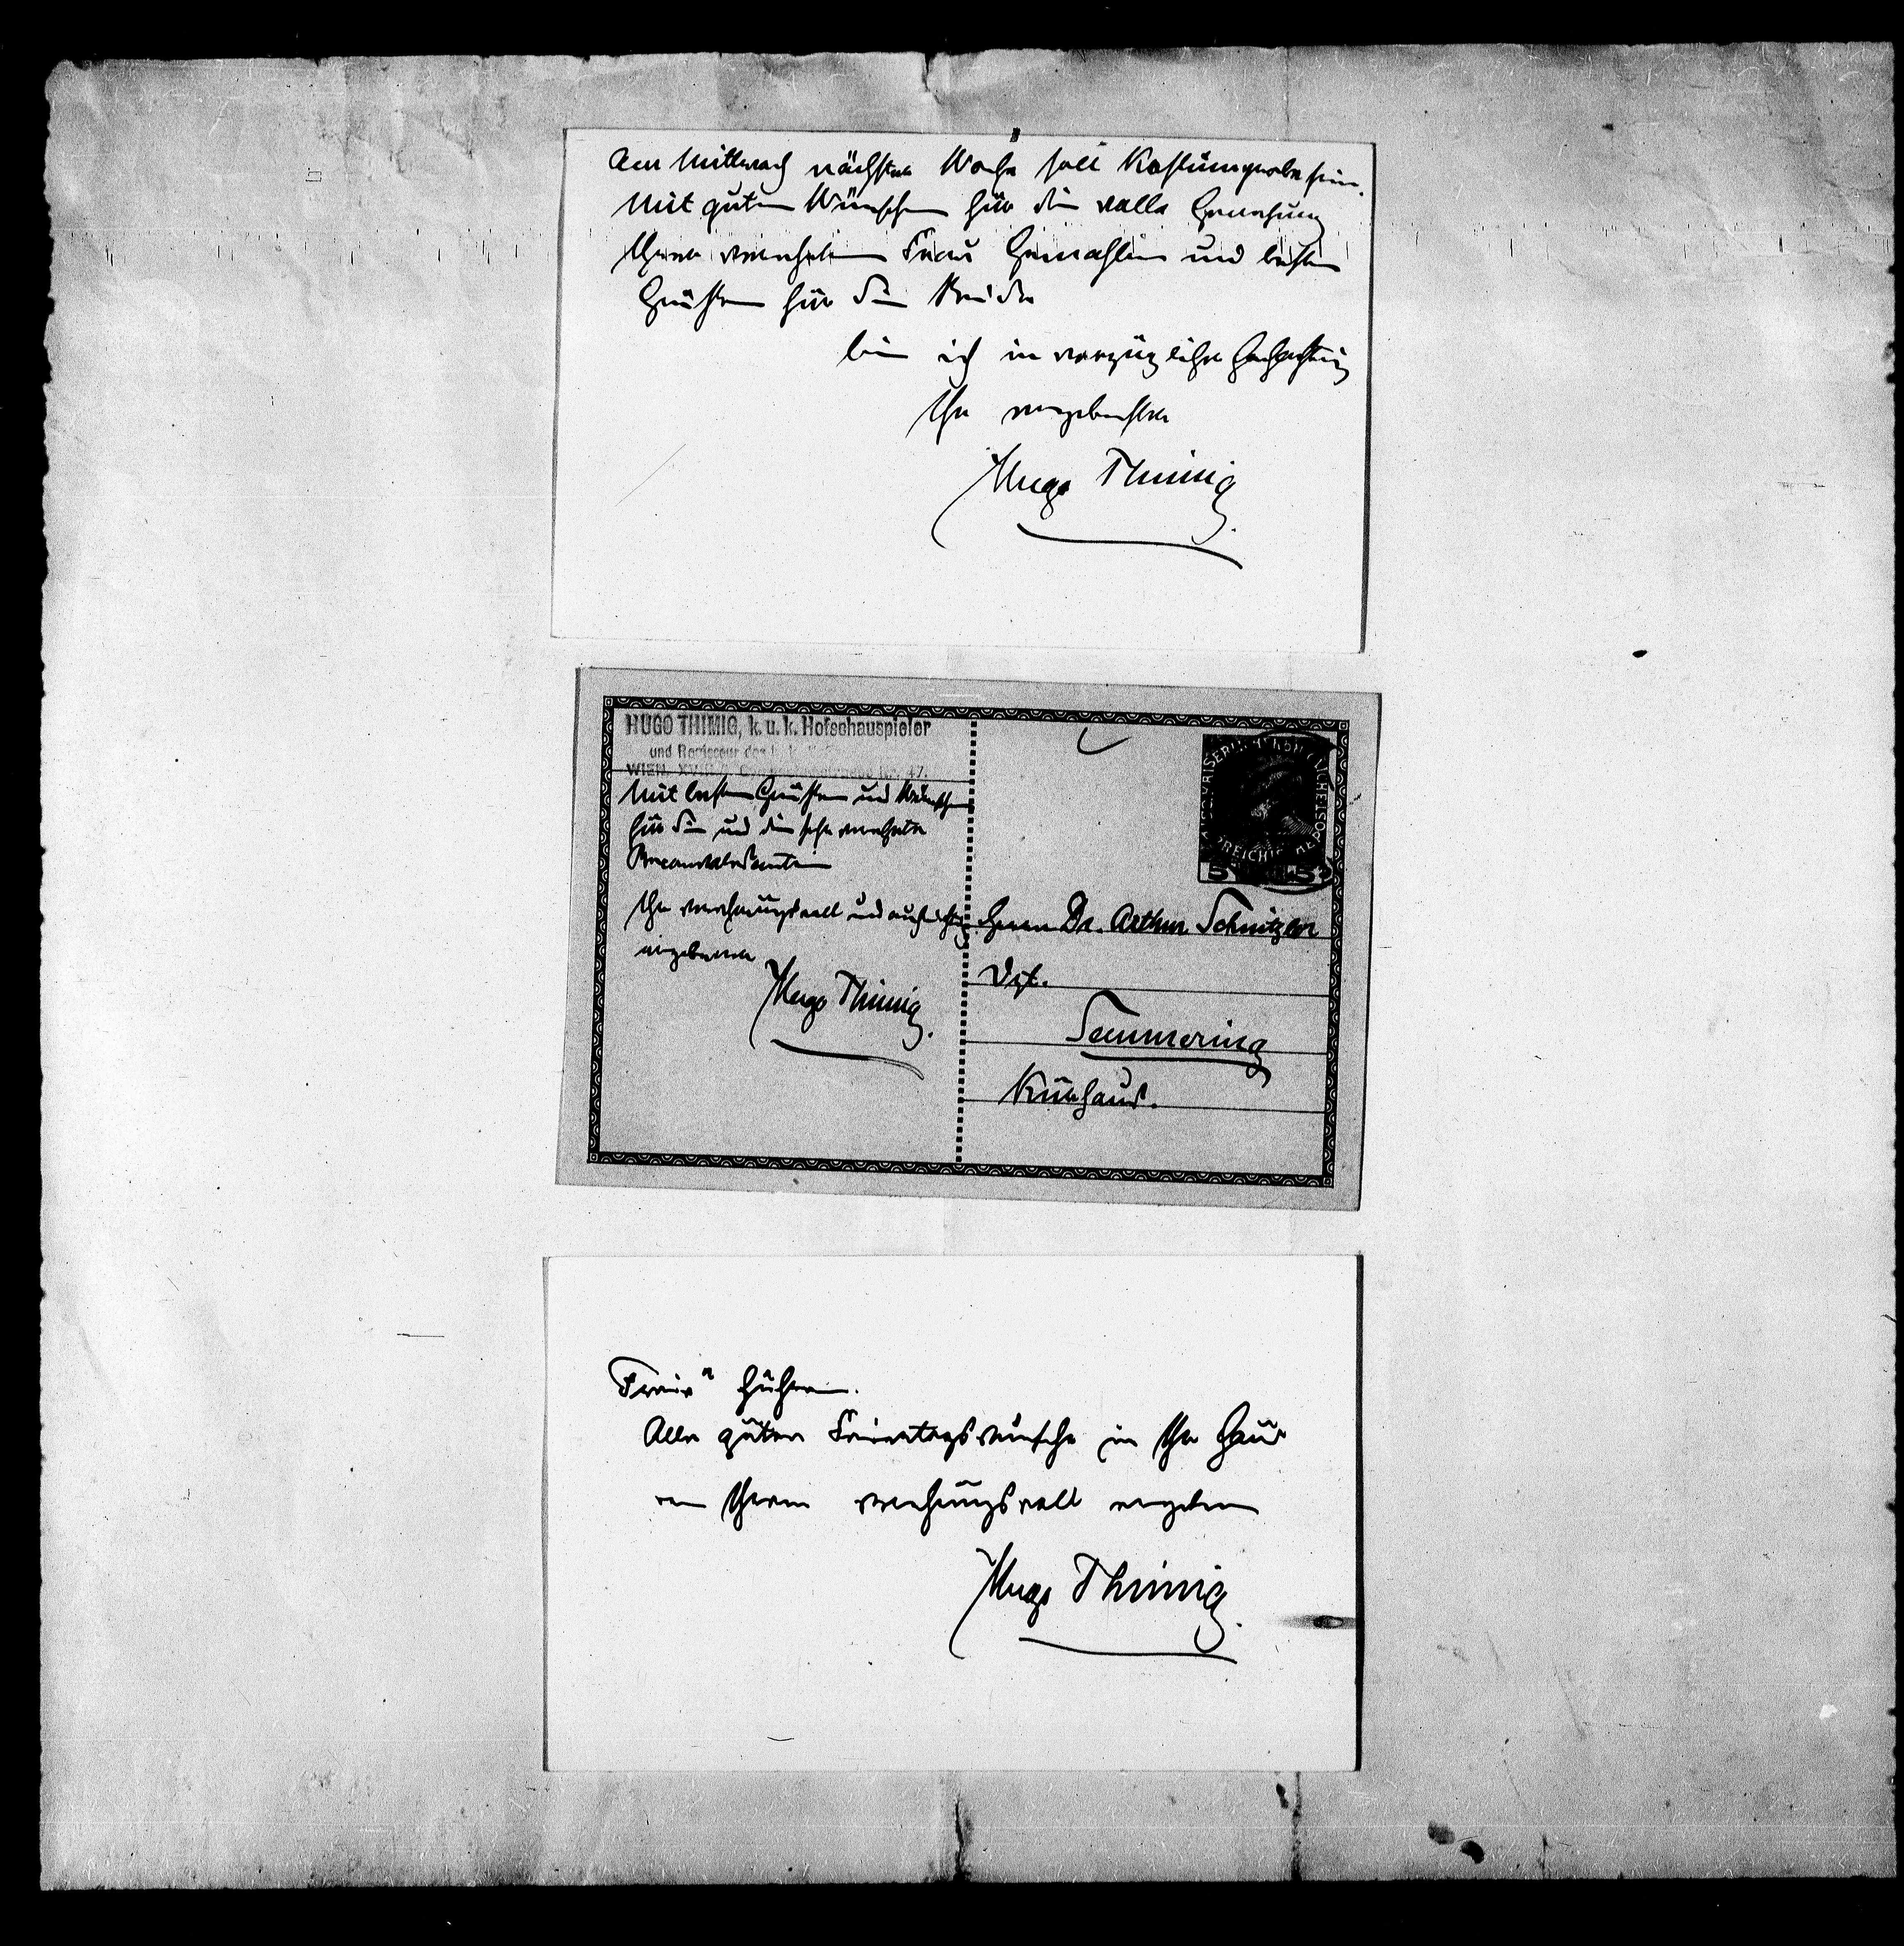 Am Mittwoch nächster Woche soll Kostümprobe sein.
Mit guten Wünschen für die volle Genesung
Ihrer verehrten Frau Gemahlin und besten
Grüßen für Sie Beide
bin ich in vorzüglicher Hochachtung
Ihr ergebenster
Hugo Thimig
HUGO THIMIG, k. u. k. Hofschauspieler
und Regisseur des k. k.
WIEN, XVIII. 47.
Mit besten Grüßen und Wünschen
für Sie und die sehr verehrte
Ihr verehrungsvoll und aufrichtig
ergebener
Hugo Thimig.
5 5
Herrn Dr. Arthur Schnitzler
Dzt.
Semmering
Kurhaus.
Freie" führen.
Alle guten Feiertagswünsche in Ihr Haus
von Ihrem verehrungsvoll ergebenen
Hugo Thimig.